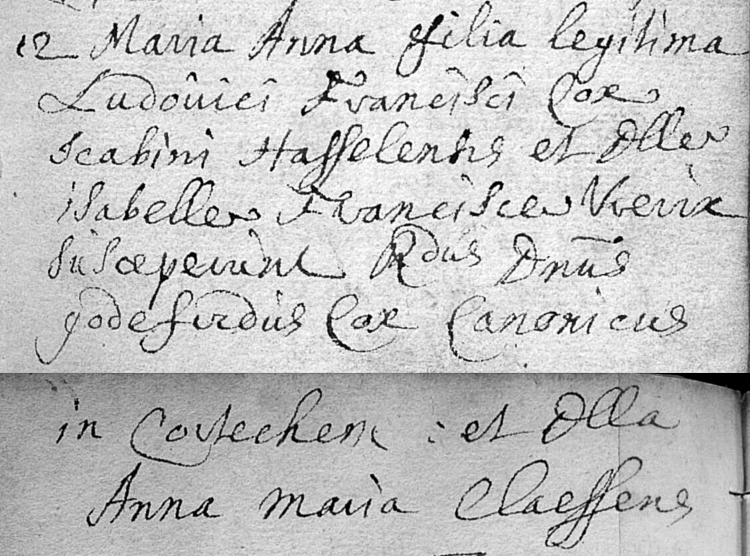 12 Maria Anna filia legitima
Ludovici Francisci Cox
Scabini Hasselensis et Dllæ
isabellæ Franciscæ Vreux
susceperunt Rdus Dnus
godefridus Cox Canonicus
in Cortechem : et Dlla
Anna maria Claessens